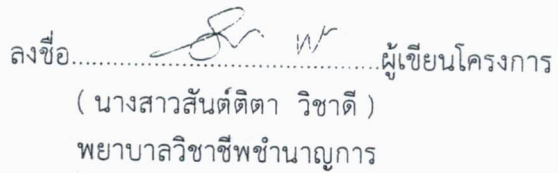 ลงชื่อ......................................................ผู้เขียนโครงการ
( นางสาวสันต์ติตา วิชาดี )
พยาบาลวิชาชีพชำนาญการ